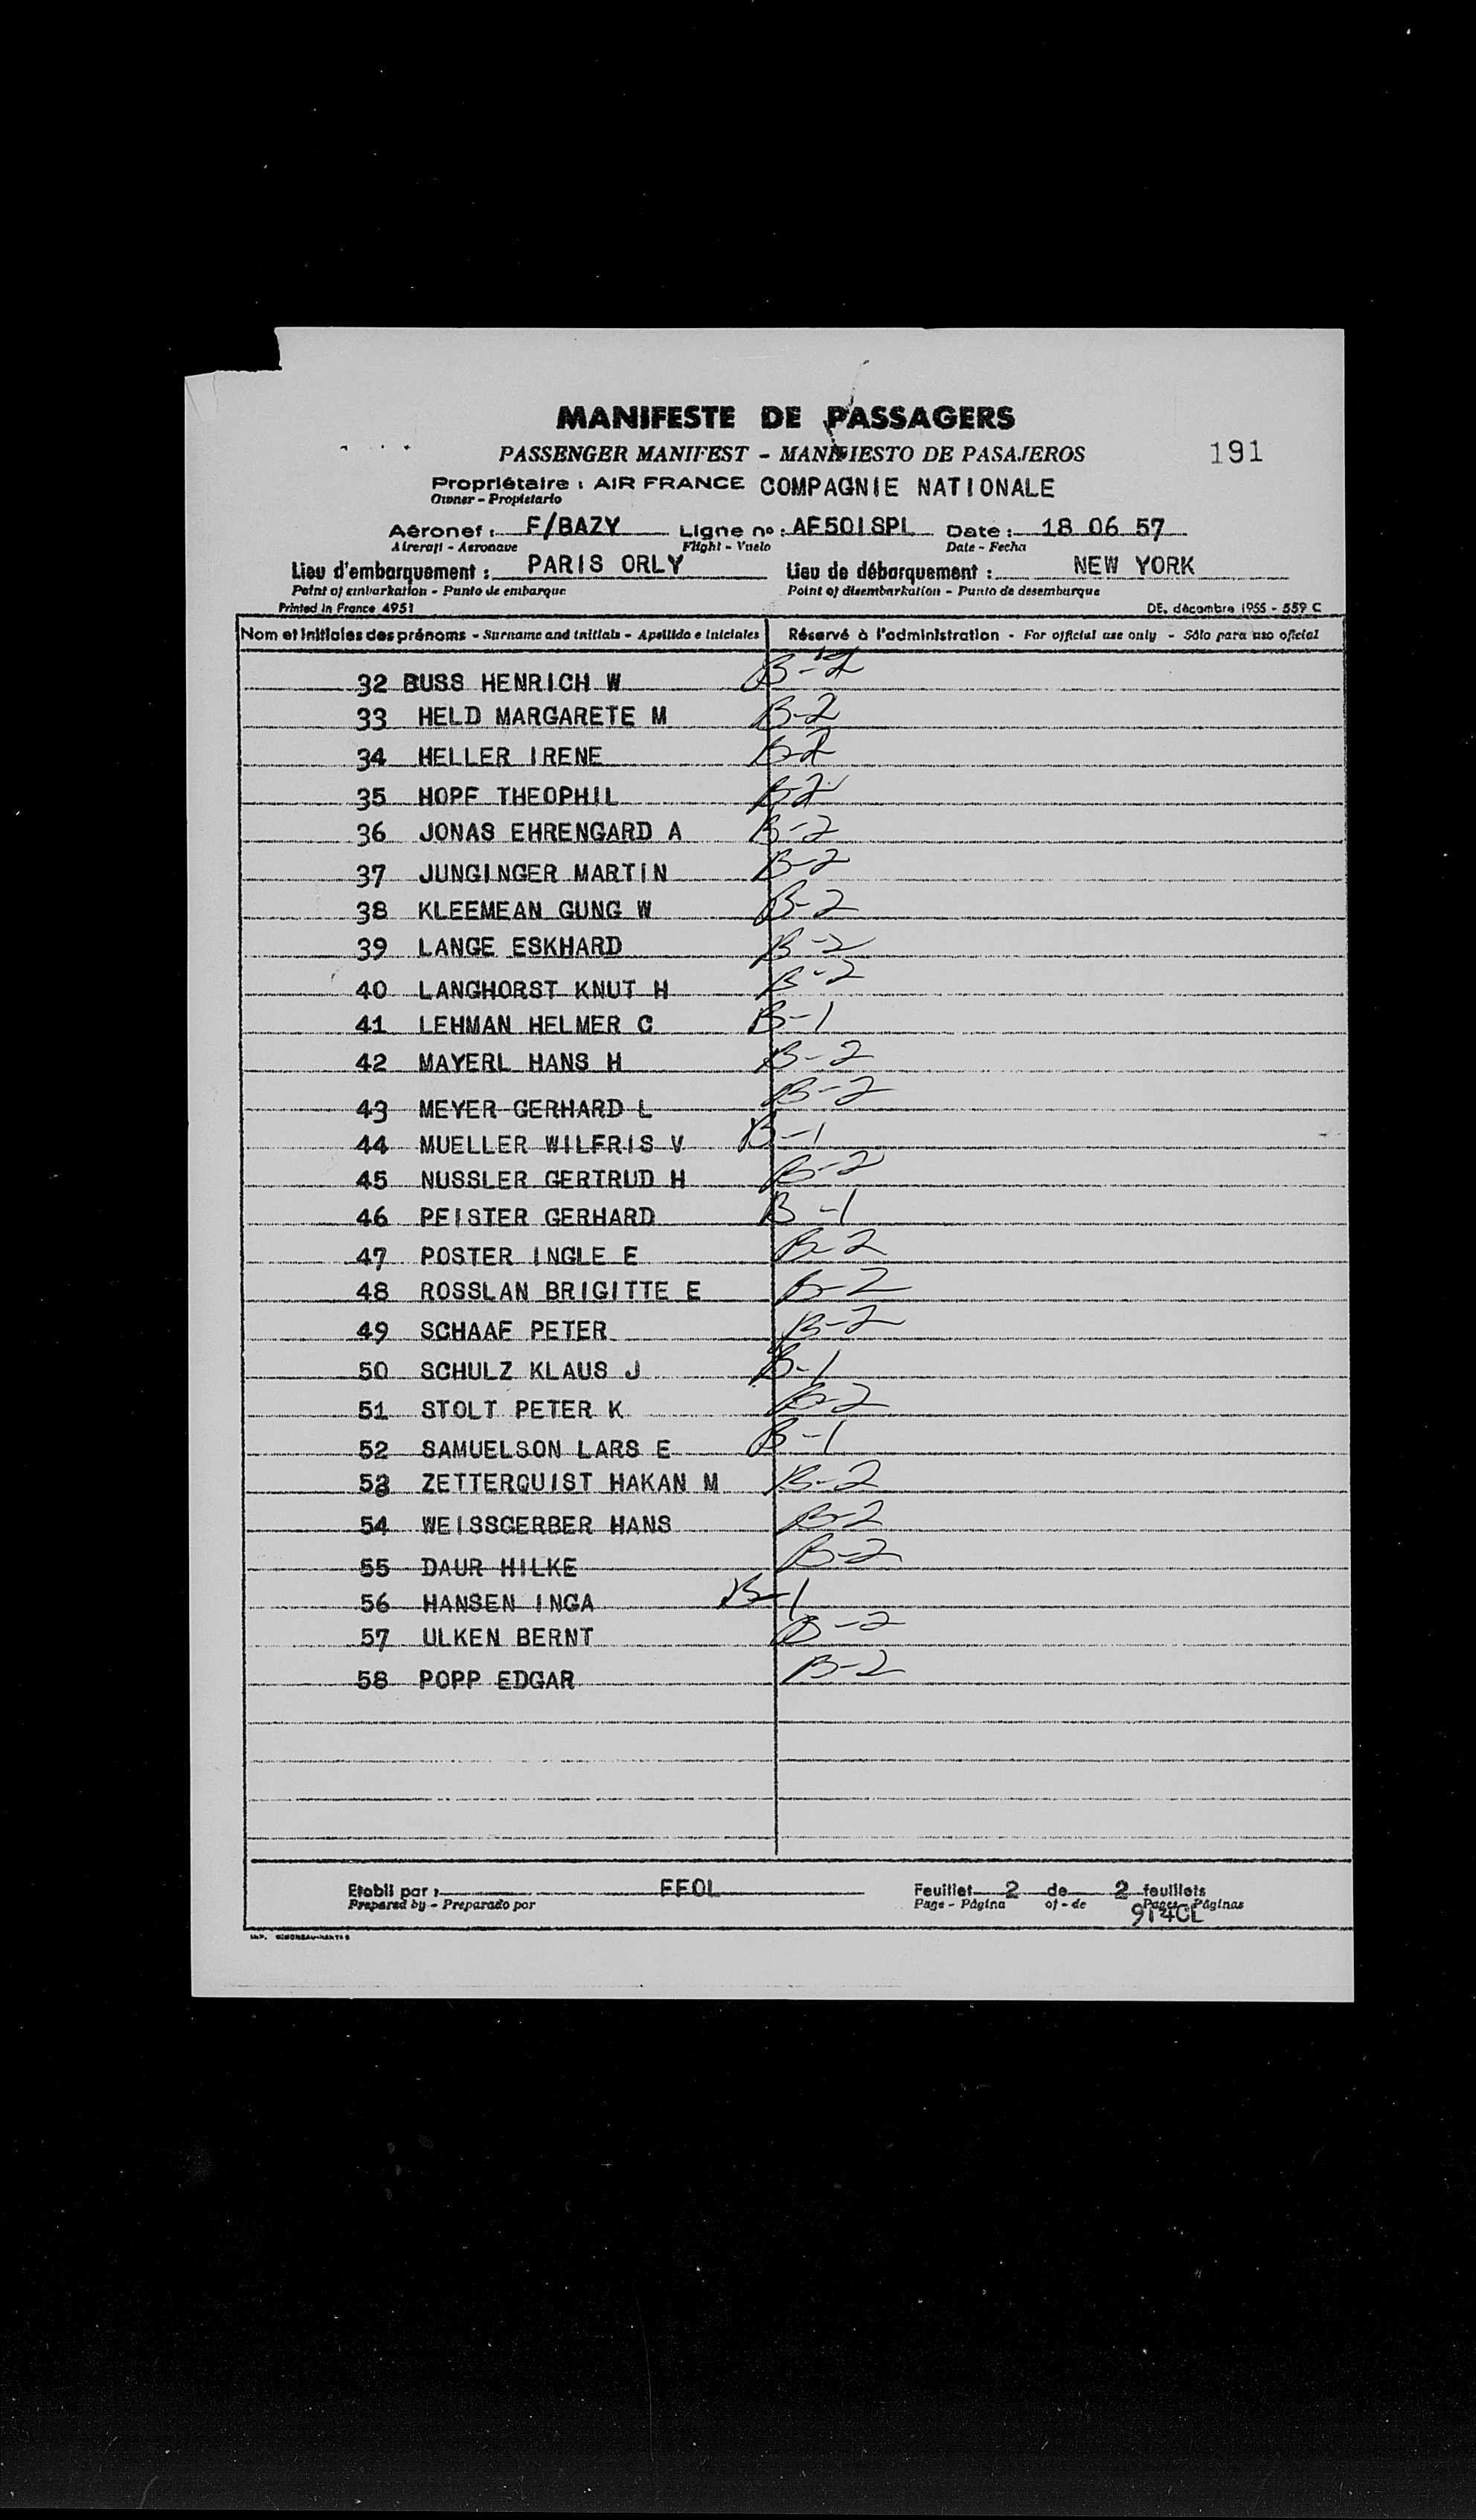 MANIFESTE DE PASSAGERS
PASSENGER MANIFEST - MANIFIESTO DE PASAJEROS
191
Propriétaire : AIR FRANCE COMPAGNIE NATIONALE
Owner - Propietario
Aéronef : F/BAZY Ligne nº : AF501SPL Date : 18 06 57
Aircraft - Aeronave Flight - Vuelo Date - Fecha
Lieu d'embarquement : PARIS ORLY Lieu de débarquement : NEW YORK
Point of embarkation - Punto de embarque Point of disembarkation - Punto de desembarque
Printed in France 4951 DE. décembre 1955 - 559 C
Nom et initiales des prénoms - Surname and initials - Apellido e iniciales Réservé à l'administration - For official use only - Sólo para uso oficial
32 BUSS HENRICH W B-2
33 HELD MARGARETE M B-2
34 HELLER IRENE B-2
35 HOPF THEOPHIL B-2
36 JONAS EHRENGARD A B-2
37 JUNGINGER MARTIN B-2
38 KLEEMEAN GUNG W B-2
39 LANGE ESKHARD B-2
40 LANGHORST KNUT H B-2
41 LEHMAN HELMER C B-1
42 MAYERL HANS H B-2
43 MEYER GERHARD L B-2
44 MUELLER WILFRIS V B-1
45 NUSSLER GERTRUD H B-2
46 PFISTER GERHARD B-1
47 POSTER INGLE E B-2
48 ROSSLAN BRIGITTE E B-2
49 SCHAAF PETER B-2
50 SCHULZ KLAUS J B-1
51 STOLT PETER K B-2
52 SAMUELSON LARS E B-1
53 ZETTERQUIST HAKAN M B-2
54 WEISSGERBER HANS B-2
55 DAUR HILKE B-2
56 HANSEN INGA B-1
57 ULKEN BERNT B-2
58 POPP EDGAR B-2
Etabli par : FFOL Feuillet 2 de 2 feuillets
Prepared by - Preparado por Page - Página of - de Pages - Páginas
914CL